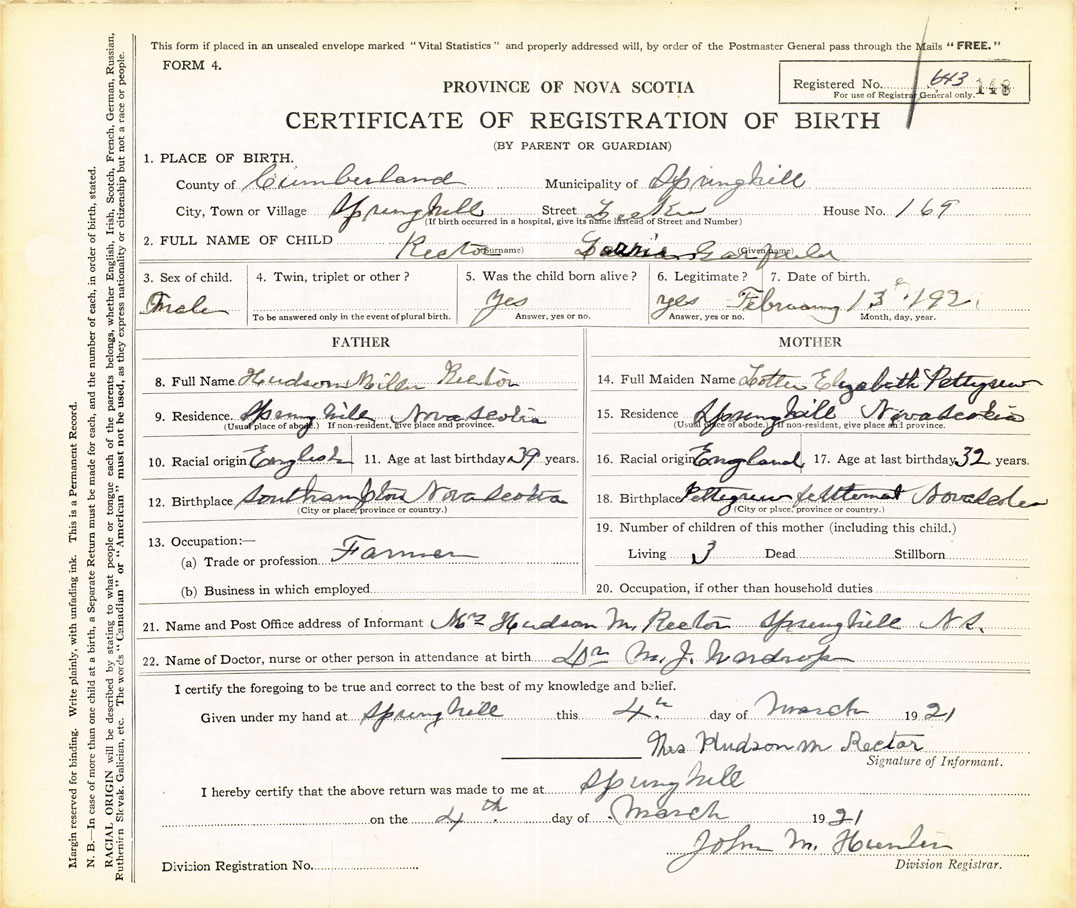 This form if placed in an unsealed envelope marked "Vital Statistics" and properly addressed will, by order of the Postmaster General pass through the Mails "FREE."
FORM 4.
Registered No. 643 148
For use of Registrar General only.
PROVINCE OF NOVA SCOTIA
CERTIFICATE OF REGISTRATION OF BIRTH
(BY PARENT OR GUARDIAN)
1. PLACE OF BIRTH.
County of Cumberland Municipality of Springhill
City, Town or Village Springhill Street House No. 169
(If birth occurred in a hospital, give its name instead of Street and Number)
2. FULL NAME OF CHILD Rector Garfield
(Surname) (Given name)
3. Sex of child. 4. Twin, triplet or other? 5. Was the child born alive? 6. Legitimate? 7. Date of birth.
Male Yes yes February 13th 192
To be answered only in the event of plural birth. Answer, yes or no. Answer, yes or no. Month, day, year.
FATHER
8. Full Name Hudson Rector
9. Residence Springhill Nova Scotia
(Usual place of abode.) If non-resident, give place and province.
10. Racial origin English 11. Age at last birthday 39 years.
12. Birthplace Southampton Nova Scotia
(City or place, province or country.)
13. Occupation:—
(a) Trade or profession Farmer
(b) Business in which employed
MOTHER
14. Full Maiden Name Lottie Elizabeth Pettygrew
15. Residence Springhill Nova Scotia
(Usual place of abode.) If non-resident, give place and province.
16. Racial origin England 17. Age at last birthday 32 years.
18. Birthplace Pettygrew settlement Nova Scotia
(City or place, province or country.)
19. Number of children of this mother (including this child.)
Living 3 Dead Stillborn
20. Occupation, if other than household duties
21. Name and Post Office address of Informant Mrs Hudson M. Rector Springhill N.S.
22. Name of Doctor, nurse or other person in attendance at birth Dr M. J. Wardrope
I certify the foregoing to be true and correct to the best of my knowledge and belief.
Given under my hand at Springhill this 4th day of March 1921
Mrs Hudson M Rector
Signature of Informant.
I hereby certify that the above return was made to me at Springhill
on the 4th day of March 1921
John M. Hunter
Division Registration No. Division Registrar.
Margin reserved for binding. Write plainly, with unfading ink. This is a Permanent Record.
N. B.—In case of more than one child at a birth, a Separate Return must be made for each, and the number of each, in order of birth, stated.
RACIAL ORIGIN will be described by stating to what people or tongue each of the parents belongs, whether English, Irish, Scotch, French, German, Russian,
Ruthenian Slovak, Galician, etc. The words "Canadian" or "American" must not be used, as they express nationality or citizenship but not a race or people.